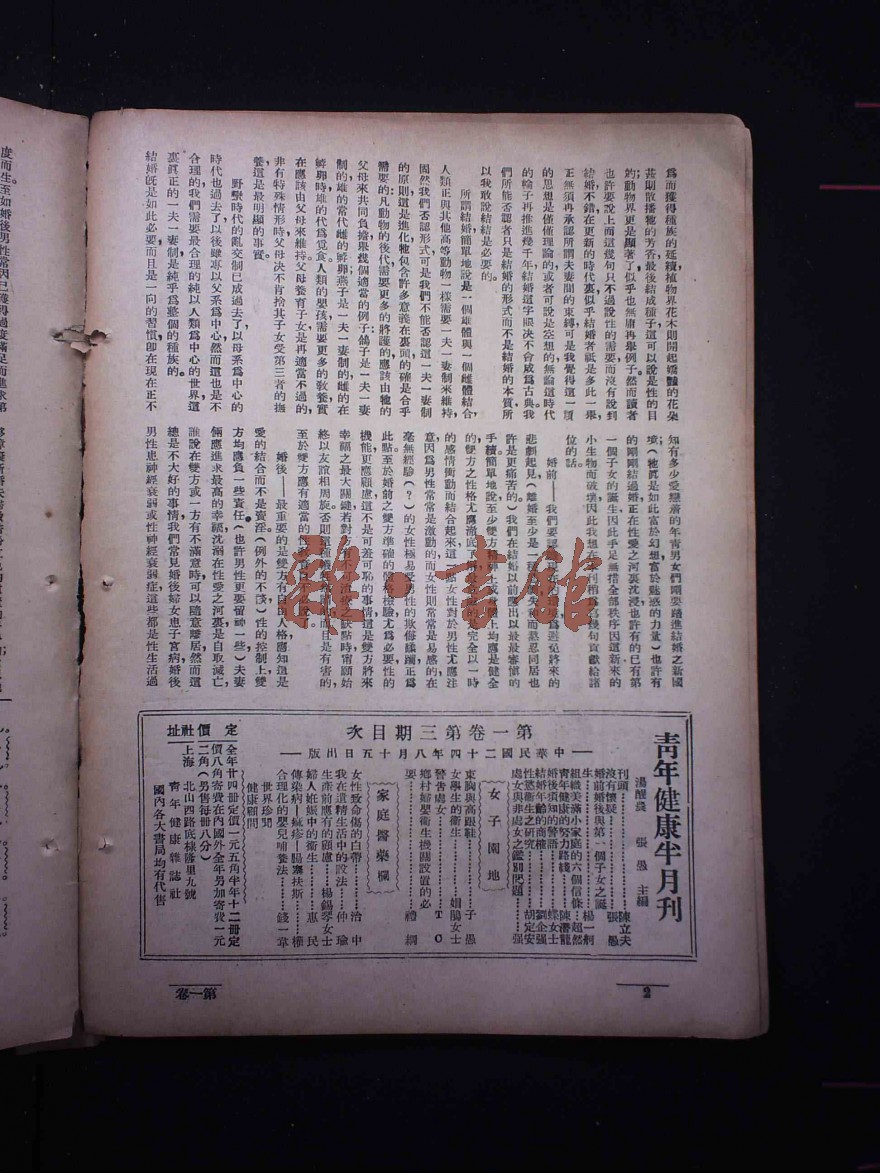 為而獲得種族的延續，植物界花木則開起嬌豔的花朵
甚則散播牠的芳香最後結成種子這可以說是性的目
的；動物界更是顯著了似乎也無庸再舉例子。然而讀者
也許要說上面這幾句只不過說性的需要而沒有說到
結婚，不錯在更新的時代裏似乎結婚者祇是多此一舉
正無須再承認所謂夫妻間的束縛，可是我覺得這一類
的思想是僅僅理論的，或者可說是空想的無論這時代
的輪子再推進幾千年結婚這字眼決不會成為古典，我
們所能否認者只是結婚的形式而不是結婚的本質，所
以我敢說結婚是必要的。
所謂結婚簡單地說是一個雄體與一個雌體結合，
人類正與其他高等動物一樣需要一夫一妻制來維持，
固然我們否認形式，可是我們不能否認這一夫一妻制
的原則，這是進化，牠包含許多意義在裏頭，的確是合乎
需要的，凡動物的後代需要更多的將護的應該由牠的
父母來共同負擔，舉幾個適當的例子：鴿子是一夫一妻
制的，雄的當代雌的孵卵，燕子是一夫一妻制的，雌的在
孵卵時雄的代為覓食，人類的嬰孩需要更多的教養，實
在應該由父母來維持，父母養育子女是再適當不過的，
非有特殊情形時父母決不肯捨其子女受第三者的撫
養，這是最明顯的事實。
野蠻時代的亂交制已成過去了，以母系為中心的
時代也過去了，以後雖專以父系為中心，然而這也是不
合理的，我們需要最合理的純以人類為中心的世界，這
裏真正的一夫一妻制是純乎為整個的種族的。
結婚既是如此必要，而且是一向的習慣，卽在現在正不
知有多少愛戀着的年靑男女們剛要踏進結婚之新國
境（牠眞是如此富於幻想富於魅惑的力量）也許有
的剛剛結過婚正在性愛之河裏沈浸，也許有的已有第
一個子女的誕生，因此手足無措全部秩序因這新來的
小生物而破壞，因此我想在本刊稍爲說幾句貢獻給諸
位的話。
婚前——我們要認
悲劇起見（離婚至少是一
許是更痛苦的）我們在結婚以前應出以最最審慎的
手續簡單地說至少雙方精神上或實體上均應是健全
的雙方之性格尤應澈底了解
的感情衝動而結合起來這一點女性對於男性尤應注
意，因爲男性常常是激動的，而女性則常常是易感的，在
毫無經驗（？）的女性極易受男性的欺侮蹂躪，正爲
此點，至於婚前之雙方準確的體格檢驗尤爲必要，性的
機能更應顧慮，這不是可羞可恥的事情，這是雙方將來
幸福之最大關鍵，若對方有不可治療之缺點時甯願始
終以友誼相周旋，否則
至於雙方應有適當的性教育自不必說了。
婚後——最重要的是雙方有自由人格，應知這是
愛的結合而不是賣淫。（例外的不談）性的控制上雙
方均應負一些責任（也許男性更要留神一些）夫妻
倆應進求最高的幸福，沈溺在性愛之河裏是自取滅亡，
誰說在雙方或一方有不滿意時可以隨意離居，然而這
總是不大好的事情，我們常見婚後婦女患子宮病，婚後
男性患神經衰弱或性神經衰弱症，這些都是性生活過
靑年健康半月刊
張愚 主編
第一卷第三期目次
——中華民國二十四年八月十五日出版——
刊頭……陳立夫
沒有懷疑……張愚
婚前婚後與第一個子女之誕
生……楊一舸
組織美滿小家庭的六個信條……超然
靑年健康的努力路綫……陳濟龍
婚後須知的警語……蝶女士
結婚年齡的商榷……劉企强
性慾衞生之硏究……胡定安
處女與非處女之鑑別問題……强
女子園地
束胸與高跟鞋……子愚
女學生的衞生……娟鵑女士
警吿處女……TO
鄉村婦嬰衞生機關設置的必
要……禮綱
家庭醫藥欄
女性致命傷的白帶……治中
我在遺精生活中的說法……仲瑜
生產前應有的顧慮……楊錫琴女士
婦人妊娠中的衞生……惠民
傳染病——痲疹——腸窒扶斯……權
合理化的嬰兒哺養法……錢一韋
世界珍聞
健康顧問
定價社址
全年廿四冊定價一元五角半年十二冊定
價八角寄費在內國外全年另加寄費一元
二角（另售每冊八分）
上海北山西路底棣隆里九號
靑年健康雜誌社
國內各大書局均有代售
2
第一卷
雜·書館